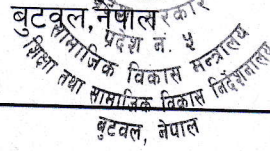 बुटवल, नेपाल
प्रदेश नं. ५
सामाजिक विकास मन्त्रालय
शिक्षा तथा सामाजिक विकास निर्देशनालय
बुटवल, नेपाल